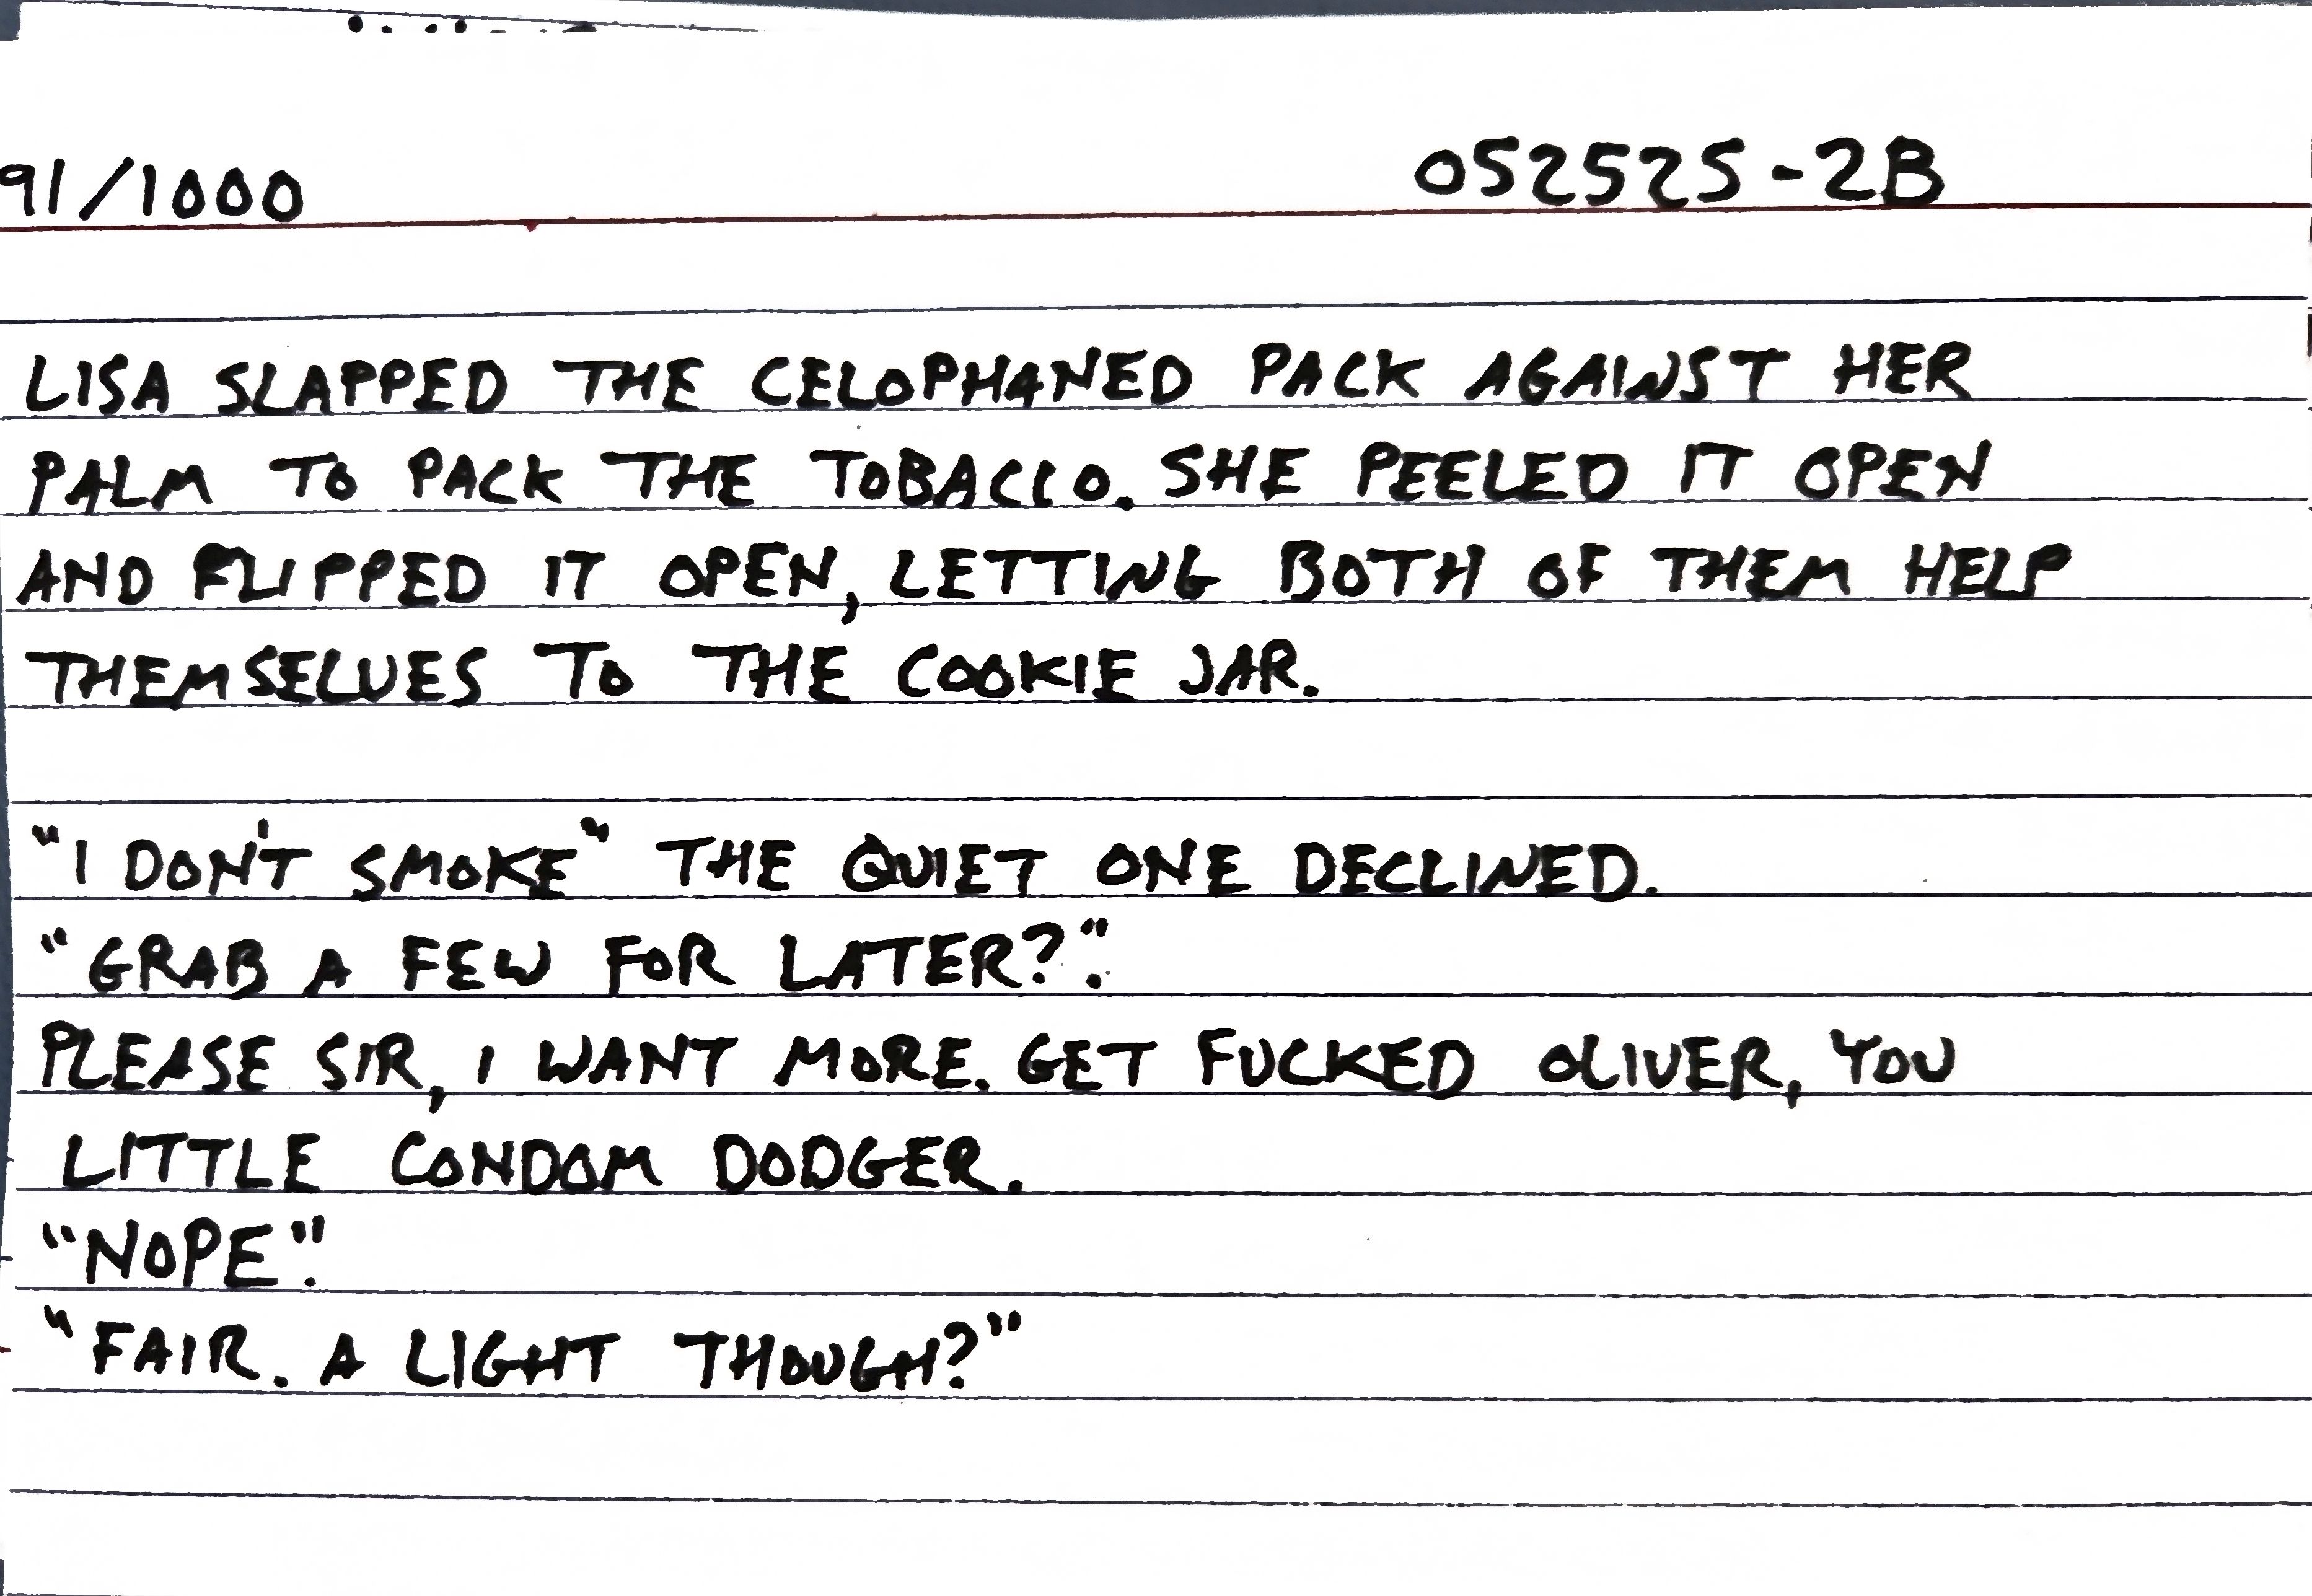 91/1000 052525-2B
LISA SLAPPED THE CELOPHANED PACK AGAINST HER
PALM TO PACK THE TOBACCO. SHE PEELED IT OPEN
AND FLIPPED IT OPEN, LETTING BOTH OF THEM HELP
THEMSELVES TO THE COOKIE JAR.
"I DON'T SMOKE" THE QUIET ONE DECLINED.
"GRAB A FEW FOR LATER?".
PLEASE SIR, I WANT MORE. GET FUCKED OLIVER, YOU
LITTLE CONDOM DODGER.
"NOPE".
"FAIR. A LIGHT THOUGH?"